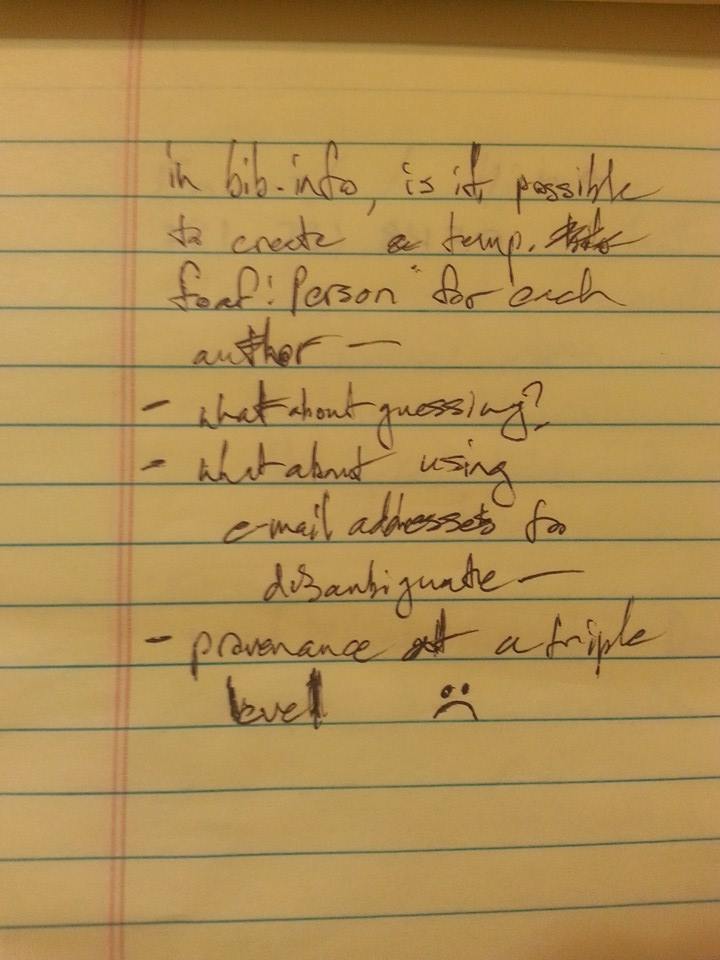 in bib.info, is it possible
to create a temp.
foaf:Person for each
author —
- what about guessing?
- what about using
e-mail addresses to
disambiguate —
- provenance at a triple
level :(